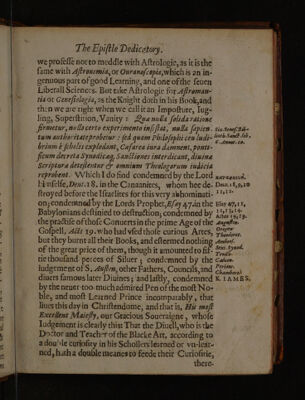 The Epistle Dedicatory.
we professe not to meddle with Astrologie, as it is the
same with Astronomia, or Ouranoscopia, which is an in-
genuous part of good Learning, and one of the seuen
Liberall Sciences. But take Astrologie for Astroman-
tia or Genethlogia, as the Knight doth in his Book, and
then we are right when we call it an Imposture, Iug-
ling, Superstition, Vanity: Quæ nulla solida ratione
firmetur, nullo certo experimento insistat, nulla sapien-
tum authoritate probetur: sed quam Philosophi ceu ludi-
brium è scholis explodant, Cæsarea iura damnent, ponti-
ficum decreta Synodicæq, Sanctiones interdicant, diuina
Scriptura detestentur & omnium Theologorum iudicia
reprobent. Which I do find condemned by the Lord
himselfe, Deut. 18. in the Canaanites, whom hee de-
stroyed before the Israelites for this very abhominati-
on; condemned by the Lords Prophet, Esay 47. in the
Babylonians destinied to destruction; condemned by
the practise of those Conuerts in the prime Age of the
Gospell, Acts 19. who had vsed those curious Artes,
but they burnt all their Books, and esteemed nothing
of the great price of them, though it amounted to fif-
tie thousand peeces of Siluer; condemned by the
iudgement of S. Austen, other Fathers, Councils, and
diuers famous later Diuines; and lastly, condemned
by the neuer too much admired Pen of the most No-
ble, and most Learned Prince incomparably, that
liues this day in Christendome, and that is, His most
Excellent Maiesty, our Gracious Soueraigne, whose
Iudgement is clearly this: That the Diuell, who is the
Doctor and Teacher of the Blacke Art, according to
a double curiosity in his Schollers learned or vn-lear-
ned, hath a double meanes to feede their Curiositie,
there-
Deut. 18,9,10
11,12.
Esay 47,11,
12,13,14.
Actes 19,19.
Augustin.
Origen
Theodoret.
Ambros.
Caluin.
Perkins.
K. IAMES.